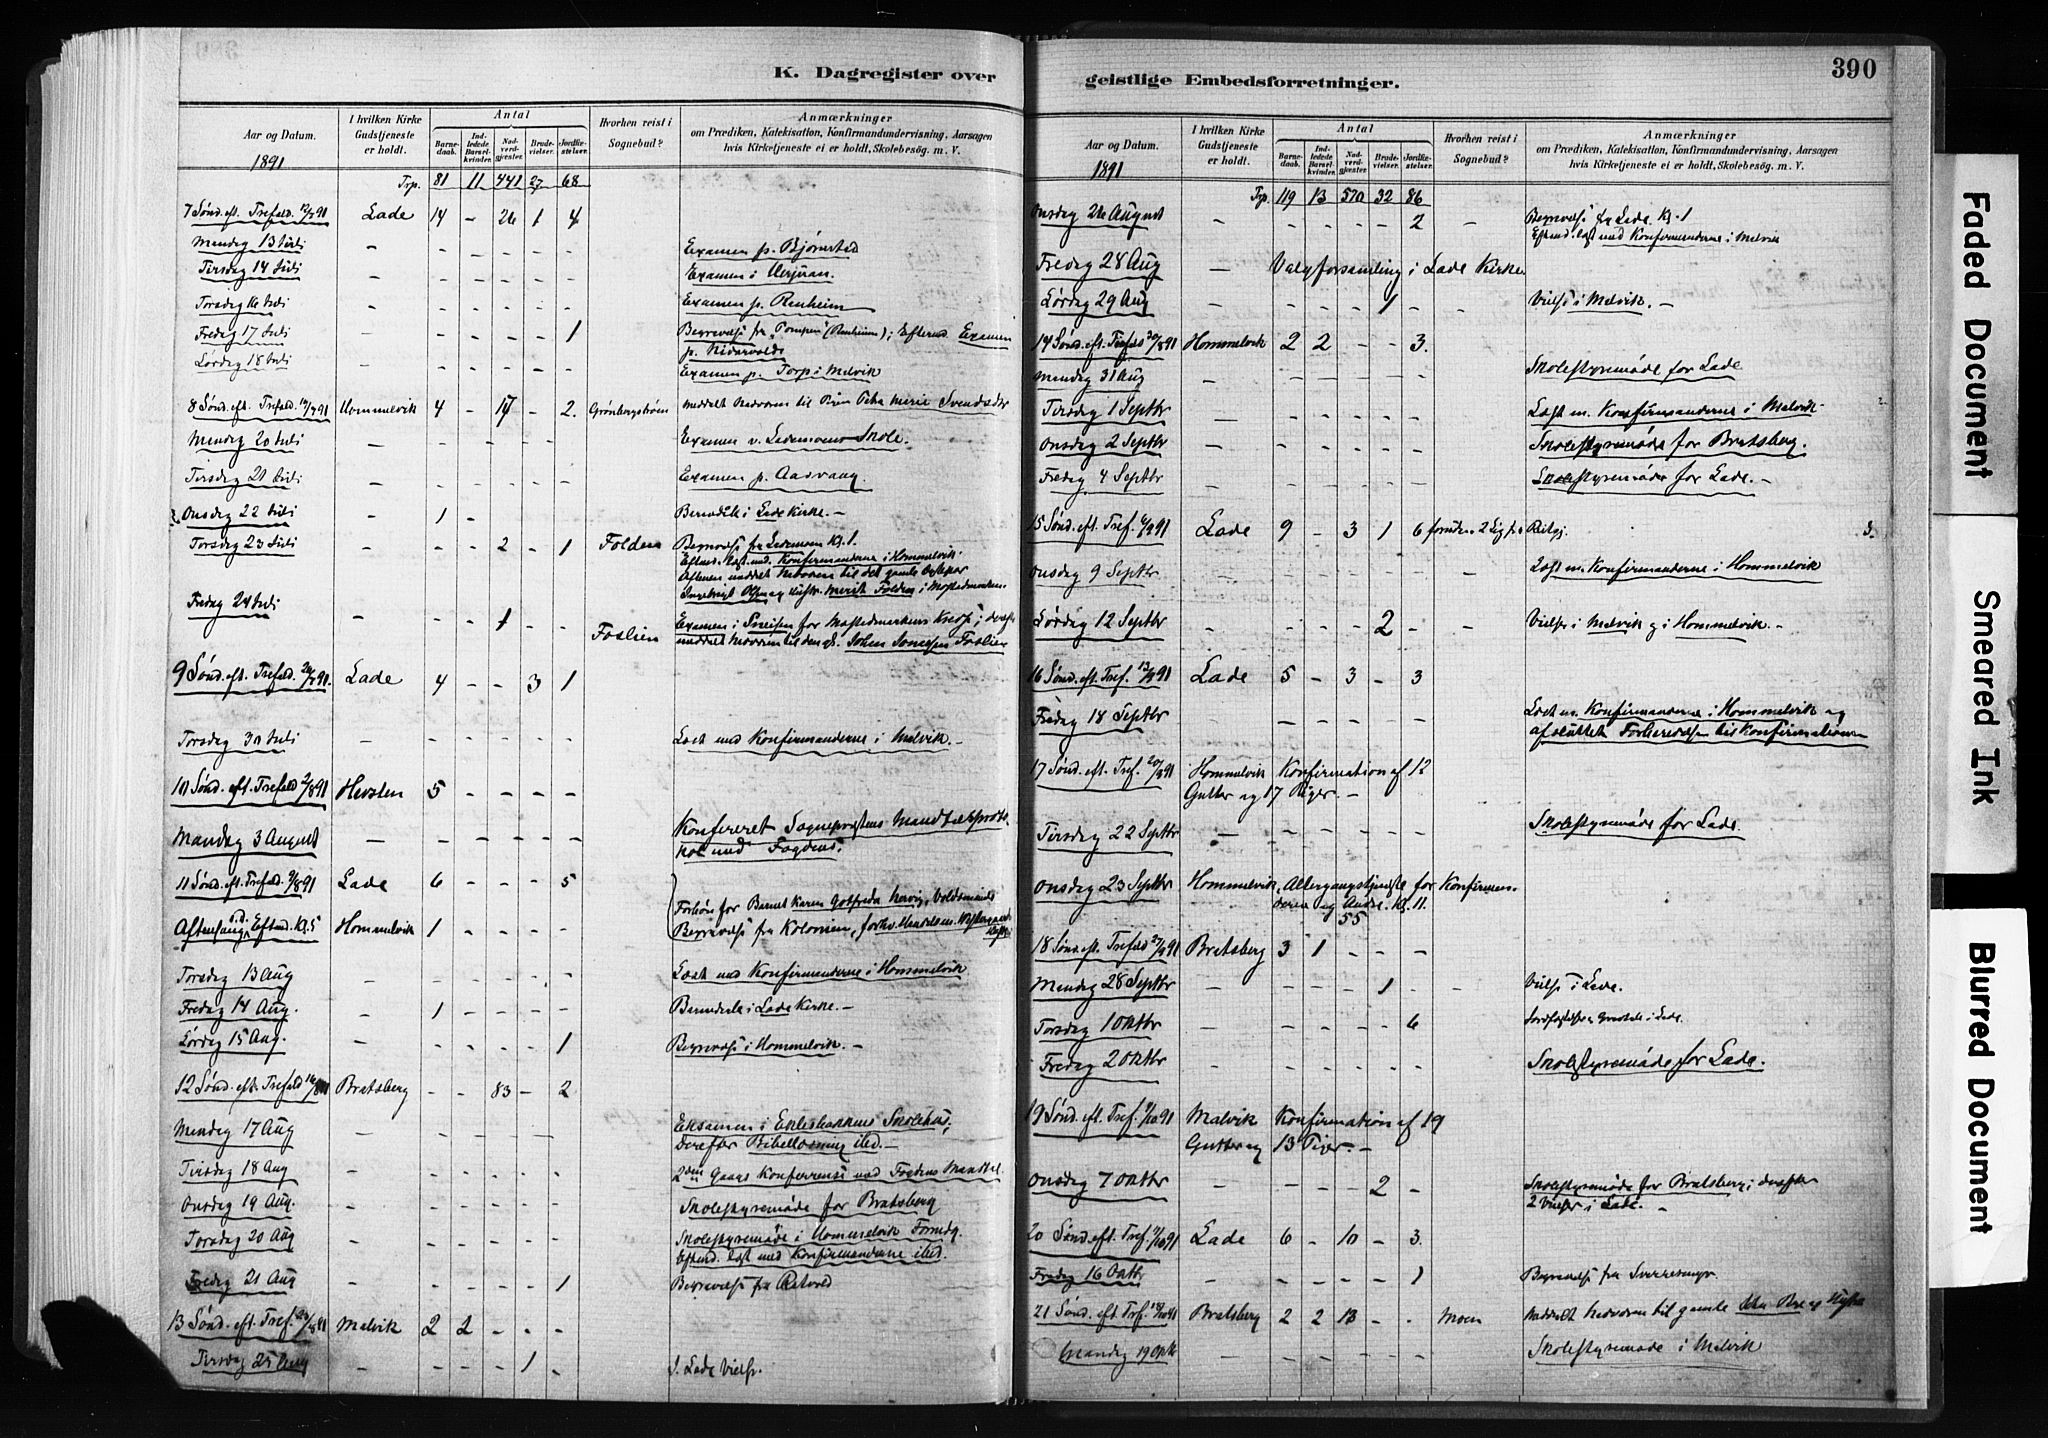 K. Dagregister over
Aar og Datum.
I hvilken Kirke
Gudstjeneste
er holdt.
Antal
Barne-
daab.
Ind-
ledede
Barsel-
kvinder.
Nad-
verd-
gjæster.
Brude-
vielser.
Jordfæ-
stelser.
Hvorhen reist i
Sognebud?
Anmærkninger
om Prædiken, Katekisation, Konfirmandundervisning, Aarsagen
hvis Kirketjeneste ei er holdt, Skolebesög. m. V.
1891
Trp. 81 11 441 27 68
7 Sönd. eft. Trefold. 12/7 91 Lade 14 - 26 1 4
Mandag 13 Juli - - - - - Examen p.
Tirsdag 14 Juli - - - - - - Examen i
Torsdag 16 Juli - - - - - - Examen p. Ranheim
Fredag 17 Juli - - - - - 1 Begravelse fra (Ranheim); Efterm. Examen
p. Nidarvold
Lördag 18 Juli - - - - - - Examen p. Torp i Malvik
8 Sönd. eft. Trefold. 19/7 91 Hommelvik 4 - 17 - 2. Grönbergströen Svendsdtr
Mandag 20 Juli - - - - - - Examen v. Lademoens Skole.
Tirsdag 21 Juli - - - - - - Examen p. Aasvang
Onsdag 22 Juli - 1 - Barnedåb i Lade Kirke. -
Torsdag 23 Juli - - - 2 - 1 Folden Begravelse fra Lademoen Kl. 1.
Efterm. læst med Konfirmanderne i Hommelvik.
Folden i Mostadmarken.
Fredag 24 Juli - - - 1 - - Foslien Examen i for Mostadmarkens
Foslien
9 Sönd. eft. Trefold. 26/7 91. Lade 4 - - 3 1
Torsdag 30 Juli - - - - - - Læst med Konfirmanderne i Malvik. -
10 Sönd. eft. Trefold 2/8 91 Hevsten 5 - - - -
Mandag 3 August - - - - - - Konfereret Sognepræstens Mandtalsproto-
kol med Fogdens.
11 Sönd. eft. Trefold. 9/8 91 Lade 6 - - - 5
Forbön for Barnet Karen Gotfreda
Aftensang s. d. Efterm. Kl. 5 Hommelvik 1 - - - - Begravelse fra Kolonien,
Torsdag 13 Aug - - - - - - Læst med Konfirmanderne i Hommelvik
Fredag 14 Aug. - 1 - - - - Barnedaab i Lade Kirke. -
Lördag 15 Aug. - - - - - 1 Begravelse i Hommelvik. -
12 Sönd. eft. Trefold 16/8 91 Bratsberg - - 83 - 2
Mandag 17 Aug - - - - - - Eksamen i Skolehus,
derefter Bibellæsning ibid. -
Tirsdag 18 Aug - - - - - -
2den Gangs Konference med Mandtal
Onsdag 19 Aug. - - - - - - Skolestyremöde for Bratsberg
Torsdag 20 Aug - - - - - - Skolestyremöde i Hommelvik Formdg.
Efterm. læst med Konfirmanderne ibid.
Fredag 21 Aug - - - - - 1 Begravelse fra
13 Sönd. eft. Tref. 23/8 91 Malvik 2 2 - - -
Tirsdag 25 Aug - - - - 1 I Lade Vielse.
geistlige Embedsforretninger.
390
Aar og Datum.
I hvilken Kirke
Gudstjeneste
er holdt.
Antal
Barne-
daab.
Ind-
ledede
Barsel-
kvinder.
Nad-
verd-
gjæster.
Brude-
vielser.
Jordfæ-
stelser.
Hvorhen reist i
Sognebud?
Anmærkninger
om Prædiken, Katekisation, Konfirmandundervisning, Aarsagen
hvis Kirketjeneste ei er holdt, Skolebesög. m. V.
1891
Trp. 119 13 570 32 86
Onsdag 26 August - - - - - 2 - Begravelse fra Lade Kl. 1
Efterm. læst med Konfirmanderne i Malvik
Fredag 28 Aug - Valgforsamling i Lade Kirke
Lördag 29 Aug - - - - 1 - Vielse i Malvik. -
14 Sönd. eft. Trefold 30/8 91 Hommelvik 2 2 - - 3.
Mandag 31 Aug - - - - - - Skolestyremöde for Lade
Tirsdag 1 Septbr - - - - - - Læst m. Konfirmanderne i Malvik.
Onsdag 2 Septbr - - - - - - Skolestyremöde for Bratsberg.
Fredag 4 Septbr - - - - - - Skolestyremöde for Lade. -
15 Sönd. eft. Tref. 6/9 91 Lade 9 - 3 1 6 foruden 2 Lig fra
Onsdag 9 Septbr - - - - - - - Læst m. Konfirmanderne i Hommelvik
Lördag 12 Septbr - - - - 2 - - Vielse i Malvik og i Hommelvik. -
16 Sönd. eft. Tref. 13/9 91 Lade 5 - 3 - 3
Fredag 18 Septbr - - - - - - Læst m. Konfirmanderne i Hommelvik og
afsluttet Forberedelsen til Konfirmationen
17 Sönd. eft. Tref. 20/9 91 Hommelvik Konfirmation af 12
Gutter og 17 Piger. -
Tirsdag 22 Septbr - - - - - - Skolestyremöde for Lade.
Onsdag 23 Septbr Hommelvik, Altergangstjeneste for Konfirman-
derne og Andre. Kl. 11.
55
18 Sönd. eft. Trefold 27/9 91 Bratsberg 3 1 - - -
Mandag 28 Septbr - - - - 1 - - Vielse i Lade.
Torsdag 1 Oktbr - - - - - 6 i Lade.
Fredag 2 Oktbr - - - - - - Skolestyremöde for Lade.
19 Sönd. eft. Tref. 4/10 91 Malvik Konfirmation af 19
Gutter og 13 Piger. -
Onsdag 7 Oktbr - - - - 2 - Skolestyremöde for Bratsberg; derefter
2 Vielser i Lade. -
20 Sönd. eft. Tref. 11/10 91 Lade 6 - 10 - 3.
Fredag 16 Oktbr - - - - - 1 Begravelse fra
21 Sönd. eft. Tref. 18/10 91 Bratsberg 2 2 13 - - Moen Meddelt Nadveren til gamle
Mandag 19 Okt - - - - - - Skolestyremöde i Malvik
Faded Document
Smeared Ink
Blurred Document